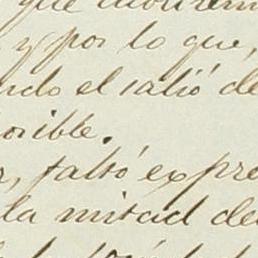 y por lo que,
ndo el salió de
osible.
r, faltó expre
la mitad de